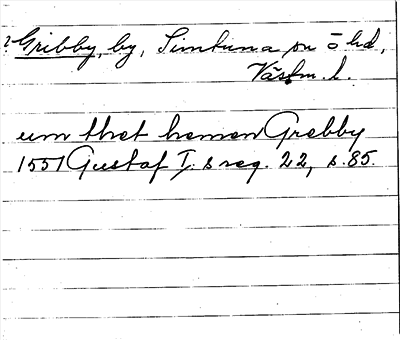 ? Gribby, by, Simtuna sn o hd,
Västm. l.
um thet hemen Grebby
1551 Gustaf I. s reg. 22, s. 85.